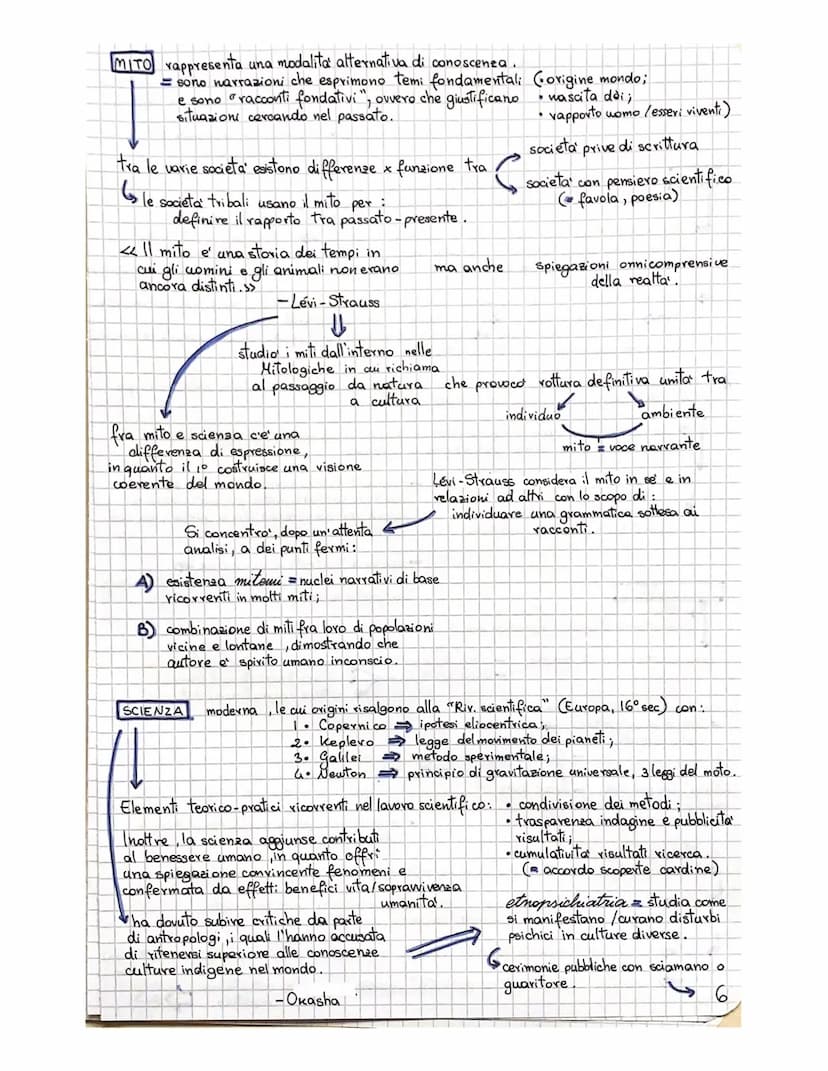 MITO rappresenta una modalità alternativa di conoscenza.
= sono narrazioni che esprimono temi fondamentali (• origine mondo;
e sono "racconti fondativi", ovvero che giustificano • nascita dèi;
situazioni cercando nel passato. • rapporto uomo/esseri viventi)
tra le varie società esistono differenze x funzione tra
società prive di scrittura
società con pensiero scientifico
(= favola, poesia)
le società tribali usano il mito per:
definire il rapporto tra passato-presente.
<< Il mito è una storia dei tempi in
cui gli uomini e gli animali non erano
ancora distinti.>>
ma anche spiegazioni onnicomprensive
della realtà.
- Lévi-Strauss
studiò i miti dall'interno nelle
Mitologiche in cui richiama
al passaggio da natura che provocò rottura definitiva unità tra
a cultura
individuo ambiente
mito = voce narrante
fra mito e scienza c'è una
differenza di espressione,
in quanto il 1° costruisce una visione
coerente del mondo.
Lévi-Strauss considera il mito in sé e in
relazioni ad altri con lo scopo di:
individuare una grammatica sottesa ai
racconti.
Si concentrò, dopo un'attenta
analisi, a dei punti fermi:
A) esistenza mitemi = nuclei narrativi di base
ricorrenti in molti miti;
B) combinazione di miti fra loro di popolazioni
vicine e lontane, dimostrando che
autore è spirito umano inconscio.
SCIENZA moderna, le cui origini risalgono alla "Riv. scientifica" (Europa, 16° sec) con:
1• Copernico ⇒ ipotesi eliocentrica;
2• Keplero ⇒ legge del movimento dei pianeti;
3• Galilei ⇒ metodo sperimentale;
4• Newton ⇒ principio di gravitazione universale, 3 leggi del moto.
Elementi teorico-pratici ricorrenti nel lavoro scientifico: • condivisione dei metodi;
• trasparenza indagine e pubblicità
risultati;
• cumulatività risultati ricerca.
(= accordo scoperte cardine)
Inoltre, la scienza aggiunse contributi
al benessere umano, in quanto offrì
una spiegazione convincente fenomeni e
confermata da effetti benefici vita/sopravvivenza
umanità.
ha dovuto subire critiche da parte
di antropologi, i quali l'hanno accusata
di ritenersi superiore alle conoscenze
culture indigene nel mondo.
- Okasha
etnopsichiatria = studia come
si manifestano/curano disturbi
psichici in culture diverse.
cerimonie pubbliche con sciamano o
guaritore.
6